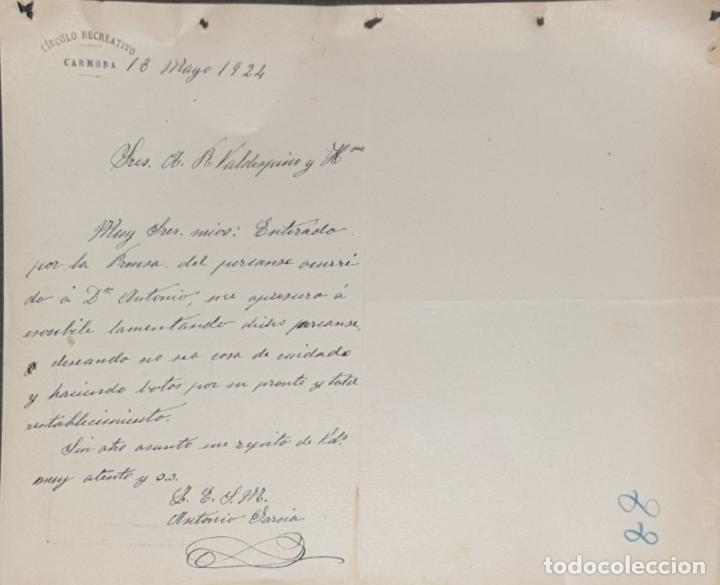 CÍRCULO RECREATIVO
CARMONA
13 Mayo 1924
Sres. A. R. Valdespino y Hno
Muy Sres. mios: Enterado
por la Prensa del percanse ocurri
do á Dn Antonio, me apresuro á
escribile lamentando dicho percanse,
y deseando no sea cosa de cuidado
y haciendo botos por su pronto y total
restablecimiento.
Sin otro asunto me repito de Vds.
muy atento y s.s.
Q. E. S. M.
Antonio García
88
todocoleccion.net